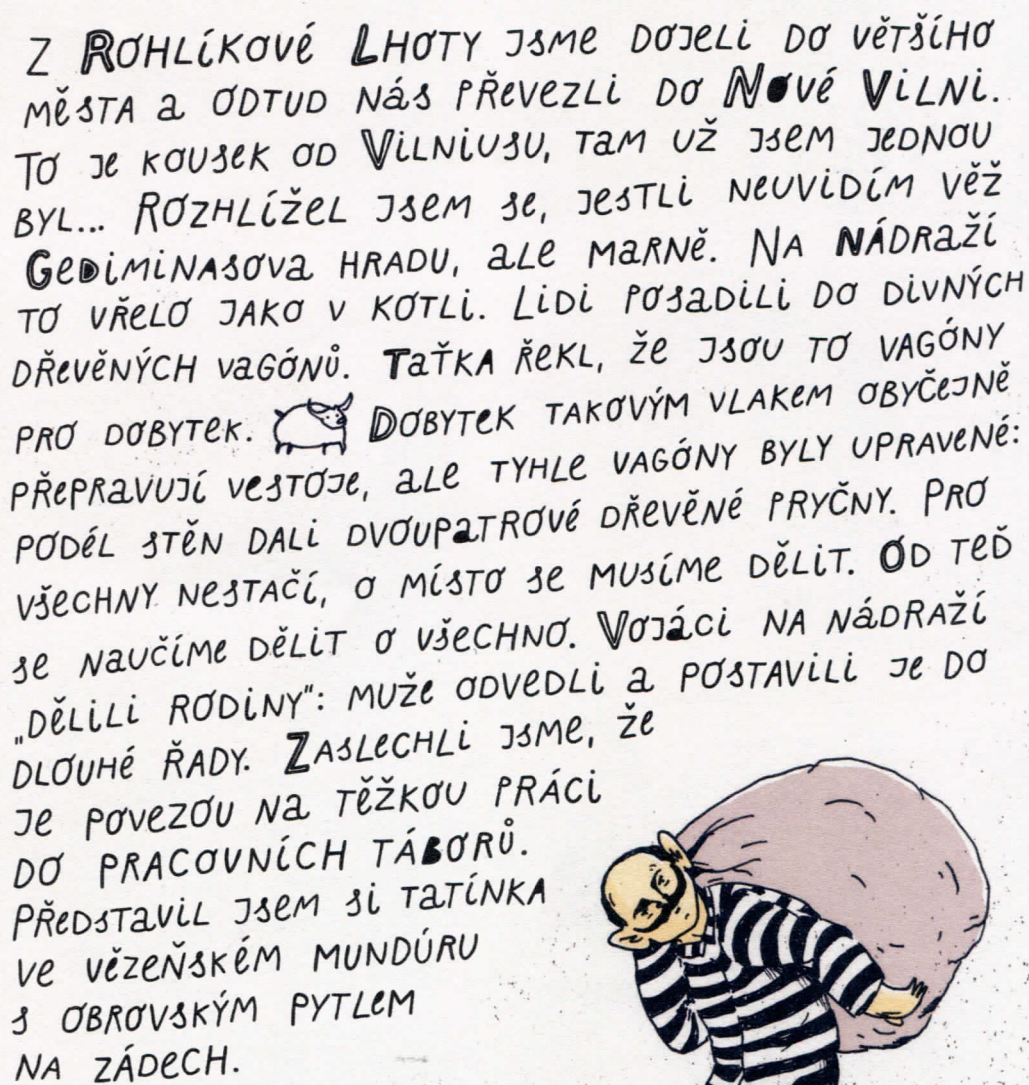 Z Rohlíkové Lhoty jsme dojeli do většího
města a odtud nás převezli do Nové Vilni.
To je kousek od Vilniusu, tam už jsem jednou
byl... Rozhlížel jsem se, jestli neuvidím věž
Gediminasova hradu, ale marně. Na nádraží
to vřelo jako v kotli. Lidi posadili do divných
dřevěných vagónů. Taťka řekl, že jsou to vagóny
pro dobytek. Dobytek takovým vlakem obyčejně
přepravují vestoje, ale tyhle vagóny byly upravené:
podél stěn dali dvoupatrové dřevěné pryčny. Pro
všechny nestačí, o místo se musíme dělit. Od teď
se naučíme dělit o všechno. Vojáci na nádraží
„dělili rodiny“: muže odvedli a postavili je do
dlouhé řady. Zaslechli jsme, že
je povezou na těžkou práci
do pracovních táborů.
Představil jsem si tatínka
ve vězeňském mundúru
s obrovským pytlem
na zádech.